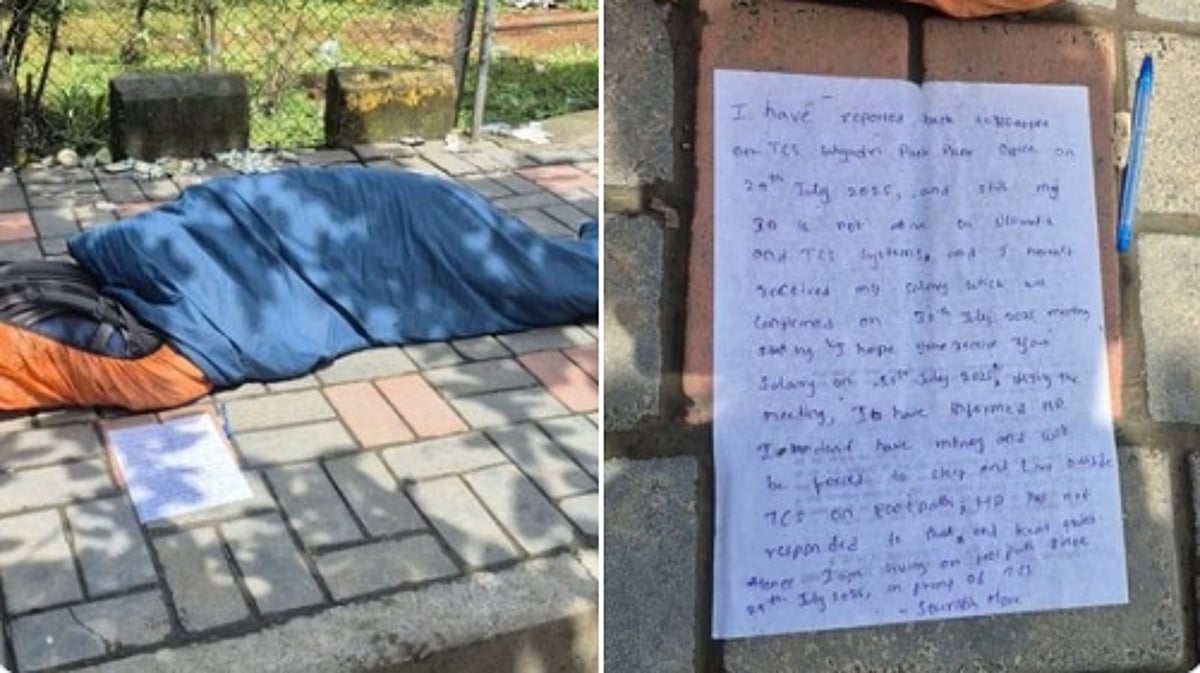 I have reported back
on TCS Sahyadri Park Pune Office on
29th July 2025, and still my
ID is not active on Ultimatix
and TCS Systems, and I haven't
received my salary which was
confirmed on 30th July 2025 meeting
stating "I hope you receive your
Salary on 31st July 2025", during the
meeting, I have informed HR
I don't have money and will
be forced to sleep and live outside
TCS on Footpath, HR has not
responded to that, and kept quiet.
Hence I am living on footpath since
29th July 2025, in front of TCS
- Sourabh More